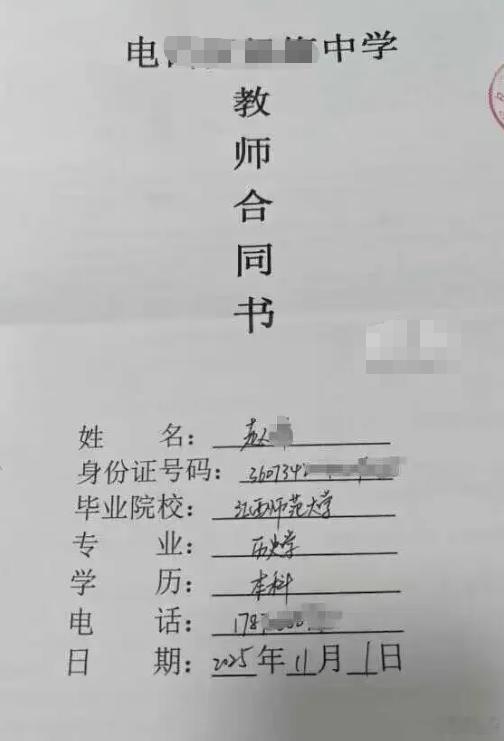 电 中学
教
师
合
同
书
姓 名：
身份证号码：360734
毕业院校：江西师范大学
专 业：历史学
学 历：本科
电 话：178
日 期：2025年11月1日